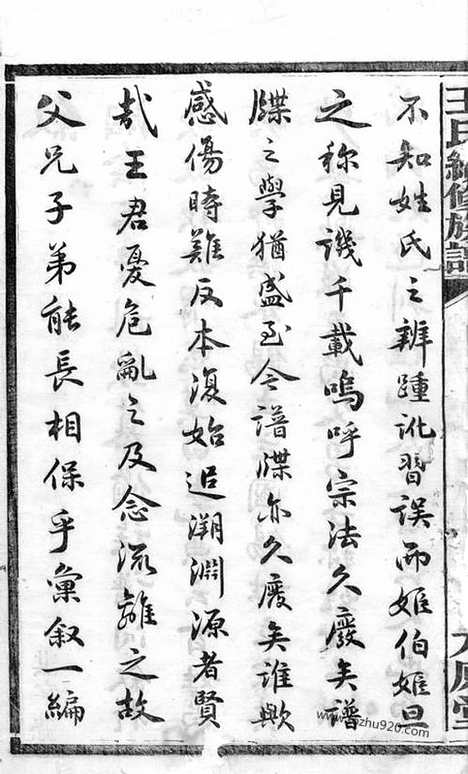 王氏續修族譜
不知姓氏之辨踵訛習誤而姬伯姬旦
之称見譏千載嗚呼宗法久廢矣譜
牒之學猶盛至今譜牒亦久廢矣誰歟
感傷時難反本復始追溯淵源者賢
哉王君憂危亂之及念流離之故
父兄子弟能長相保乎彙叙一編
zhu920.com